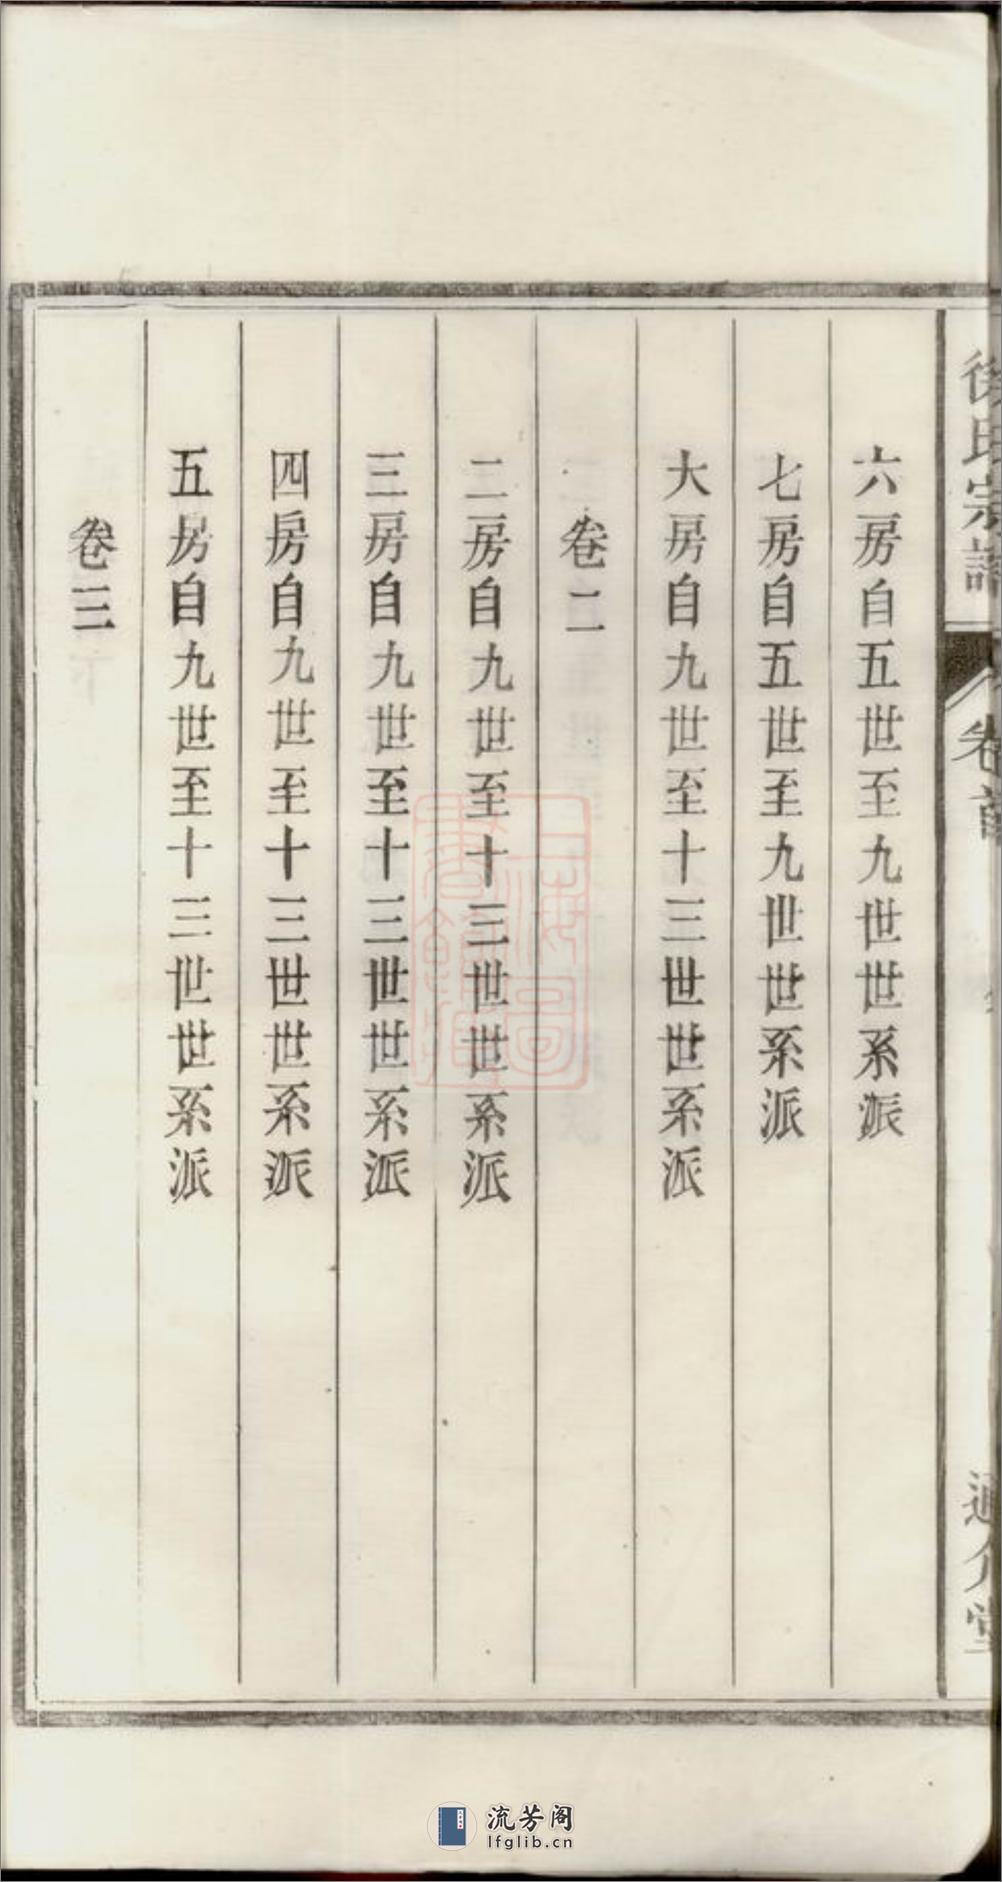 徐氏宗譜
卷首
通介堂
六房自五世至九世世系派
七房自五世至九世世系派
大房自九世至十三世世系派
卷二
二房自九世至十三世世系派
三房自九世至十三世世系派
四房自九世至十三世世系派
五房自九世至十三世世系派
卷三
上海圖書館藏
流芳阁
lfglib.cn